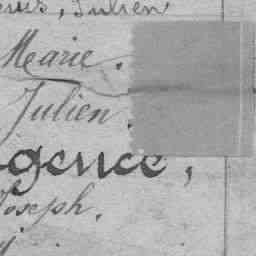 Julien
Marie.
Julien.
gence,
Joseph.